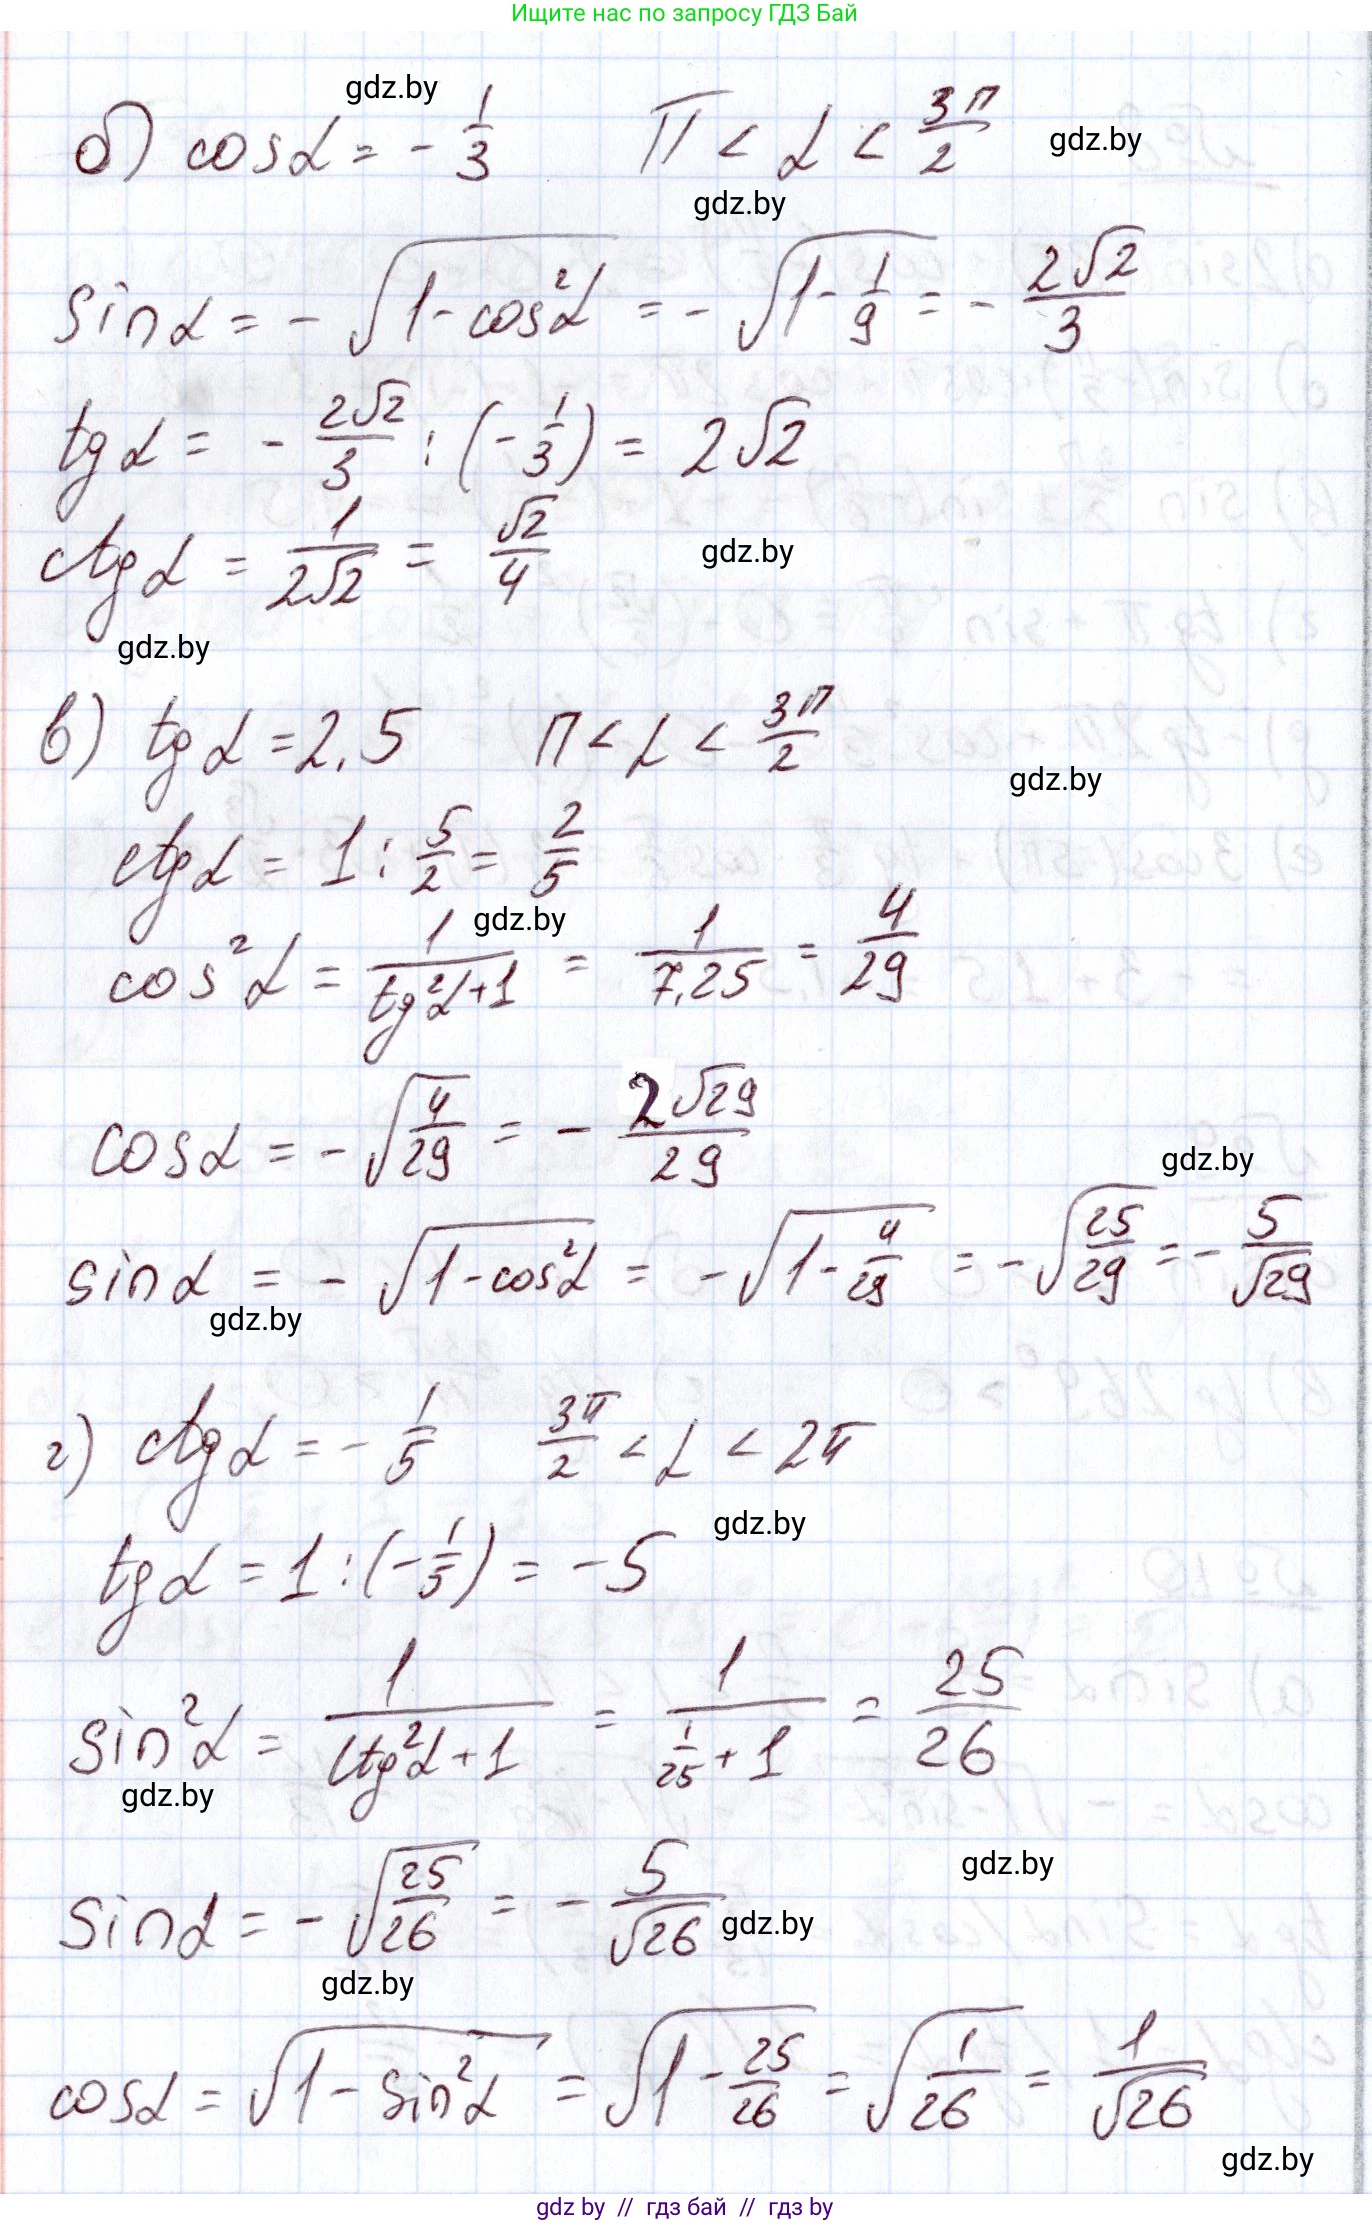 Ищите нас по запросу ГДЗ Бай
gdz.by
б) cosα = - 1/3 π < α < 3π/2 gdz.by
gdz.by
sinα = - √(1-cos²α) = - √(1-1/9) = - 2√2/3
tgα = - 2√2/3 : (-1/3) = 2√2
ctgα = 1/(2√2) = √2/4 gdz.by
gdz.by
в) tgα = 2,5 π < α < 3π/2
gdz.by
ctgα = 1 : 5/2 = 2/5
gdz.by
cos²α = 1/(tg²α+1) = 1/7,25 = 4/29
cosα = - √(4/29) = - 2√29/29
gdz.by
sinα = - √(1-cos²α) = - √(1-4/29) = - √(25/29) = - 5/√29
gdz.by
г) ctgα = - 1/5 3π/2 < α < 2π
gdz.by
tgα = 1 : (-1/5) = -5
sin²α = 1/(ctg²α+1) = 1/(1/25+1) = 25/26
gdz.by
gdz.by
sinα = - √(25/26) = - 5/√26 gdz.by
gdz.by
cosα = √(1-sin²α) = √(1-25/26) = √(1/26) = 1/√26
gdz.by
gdz by // гдз бай // гдз by